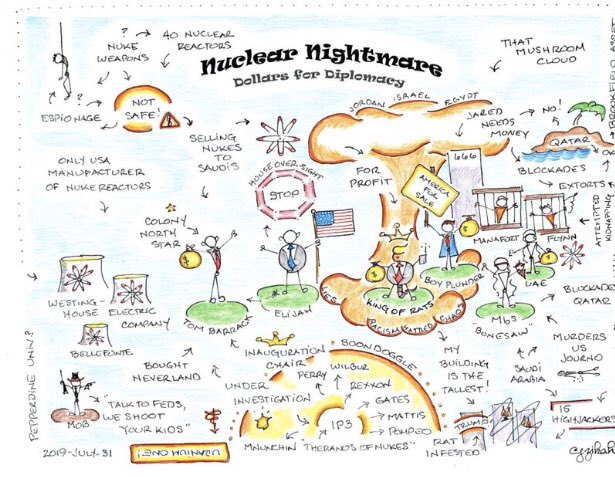 Nuclear Nightmare
Dollars for Diplomacy
?
NUKE
WEAPONS
40 NUCLEAR
REACTORS
?
ESPIONAGE
NOT
SAFE!
ONLY USA
MANUFACTURER
OF NUKE REACTORS
SELLING
NUKES
TO
SAUDIS
COLONY
NORTH
STAR
HOUSE OVER-SIGHT
STOP
JORDAN ISRAEL EGYPT
THAT
MUSHROOM
CLOUD
JARED
NEEDS
MONEY
NO!
QATAR
BLOCKADES
EXTORTS
ATTEMPTED
KIDNAPING
FOR
PROFIT
666
AMERICA
FOR
SALE
MANAFORT
FLYNN
BOY PLUNDER
UAE
WESTING-
HOUSE ELECTRIC
COMPANY
BELLEFONTE
TOM BARRACK
ELIJAH
KING OF RATS
LIES
RACISM HATRED CHAOS
MbS
BONESAW
BLOCKADE
QATAR
BOUGHT
NEVERLAND
INAUGURATION
CHAIR
UNDER
INVESTIGATION
BOONDOGGLE
PERRY
WILBUR
REXXON
GATES
MATTIS
POMPEO
IP3
MAUNCHIN
"THERANOS OF NUKES"
MY
BUILDING
IS THE
TALLEST!
SAUDI
ARABIA
MURDERS
US
JOURNO
15
HIGHJACKERS
TRUMP
RAT
INFESTED
PEPPERDINE UNIV.?
MOB
"TALK TO FEDS,
WE SHOOT
YOUR KIDS"
2019-JULY-31
URANIUM ONE!